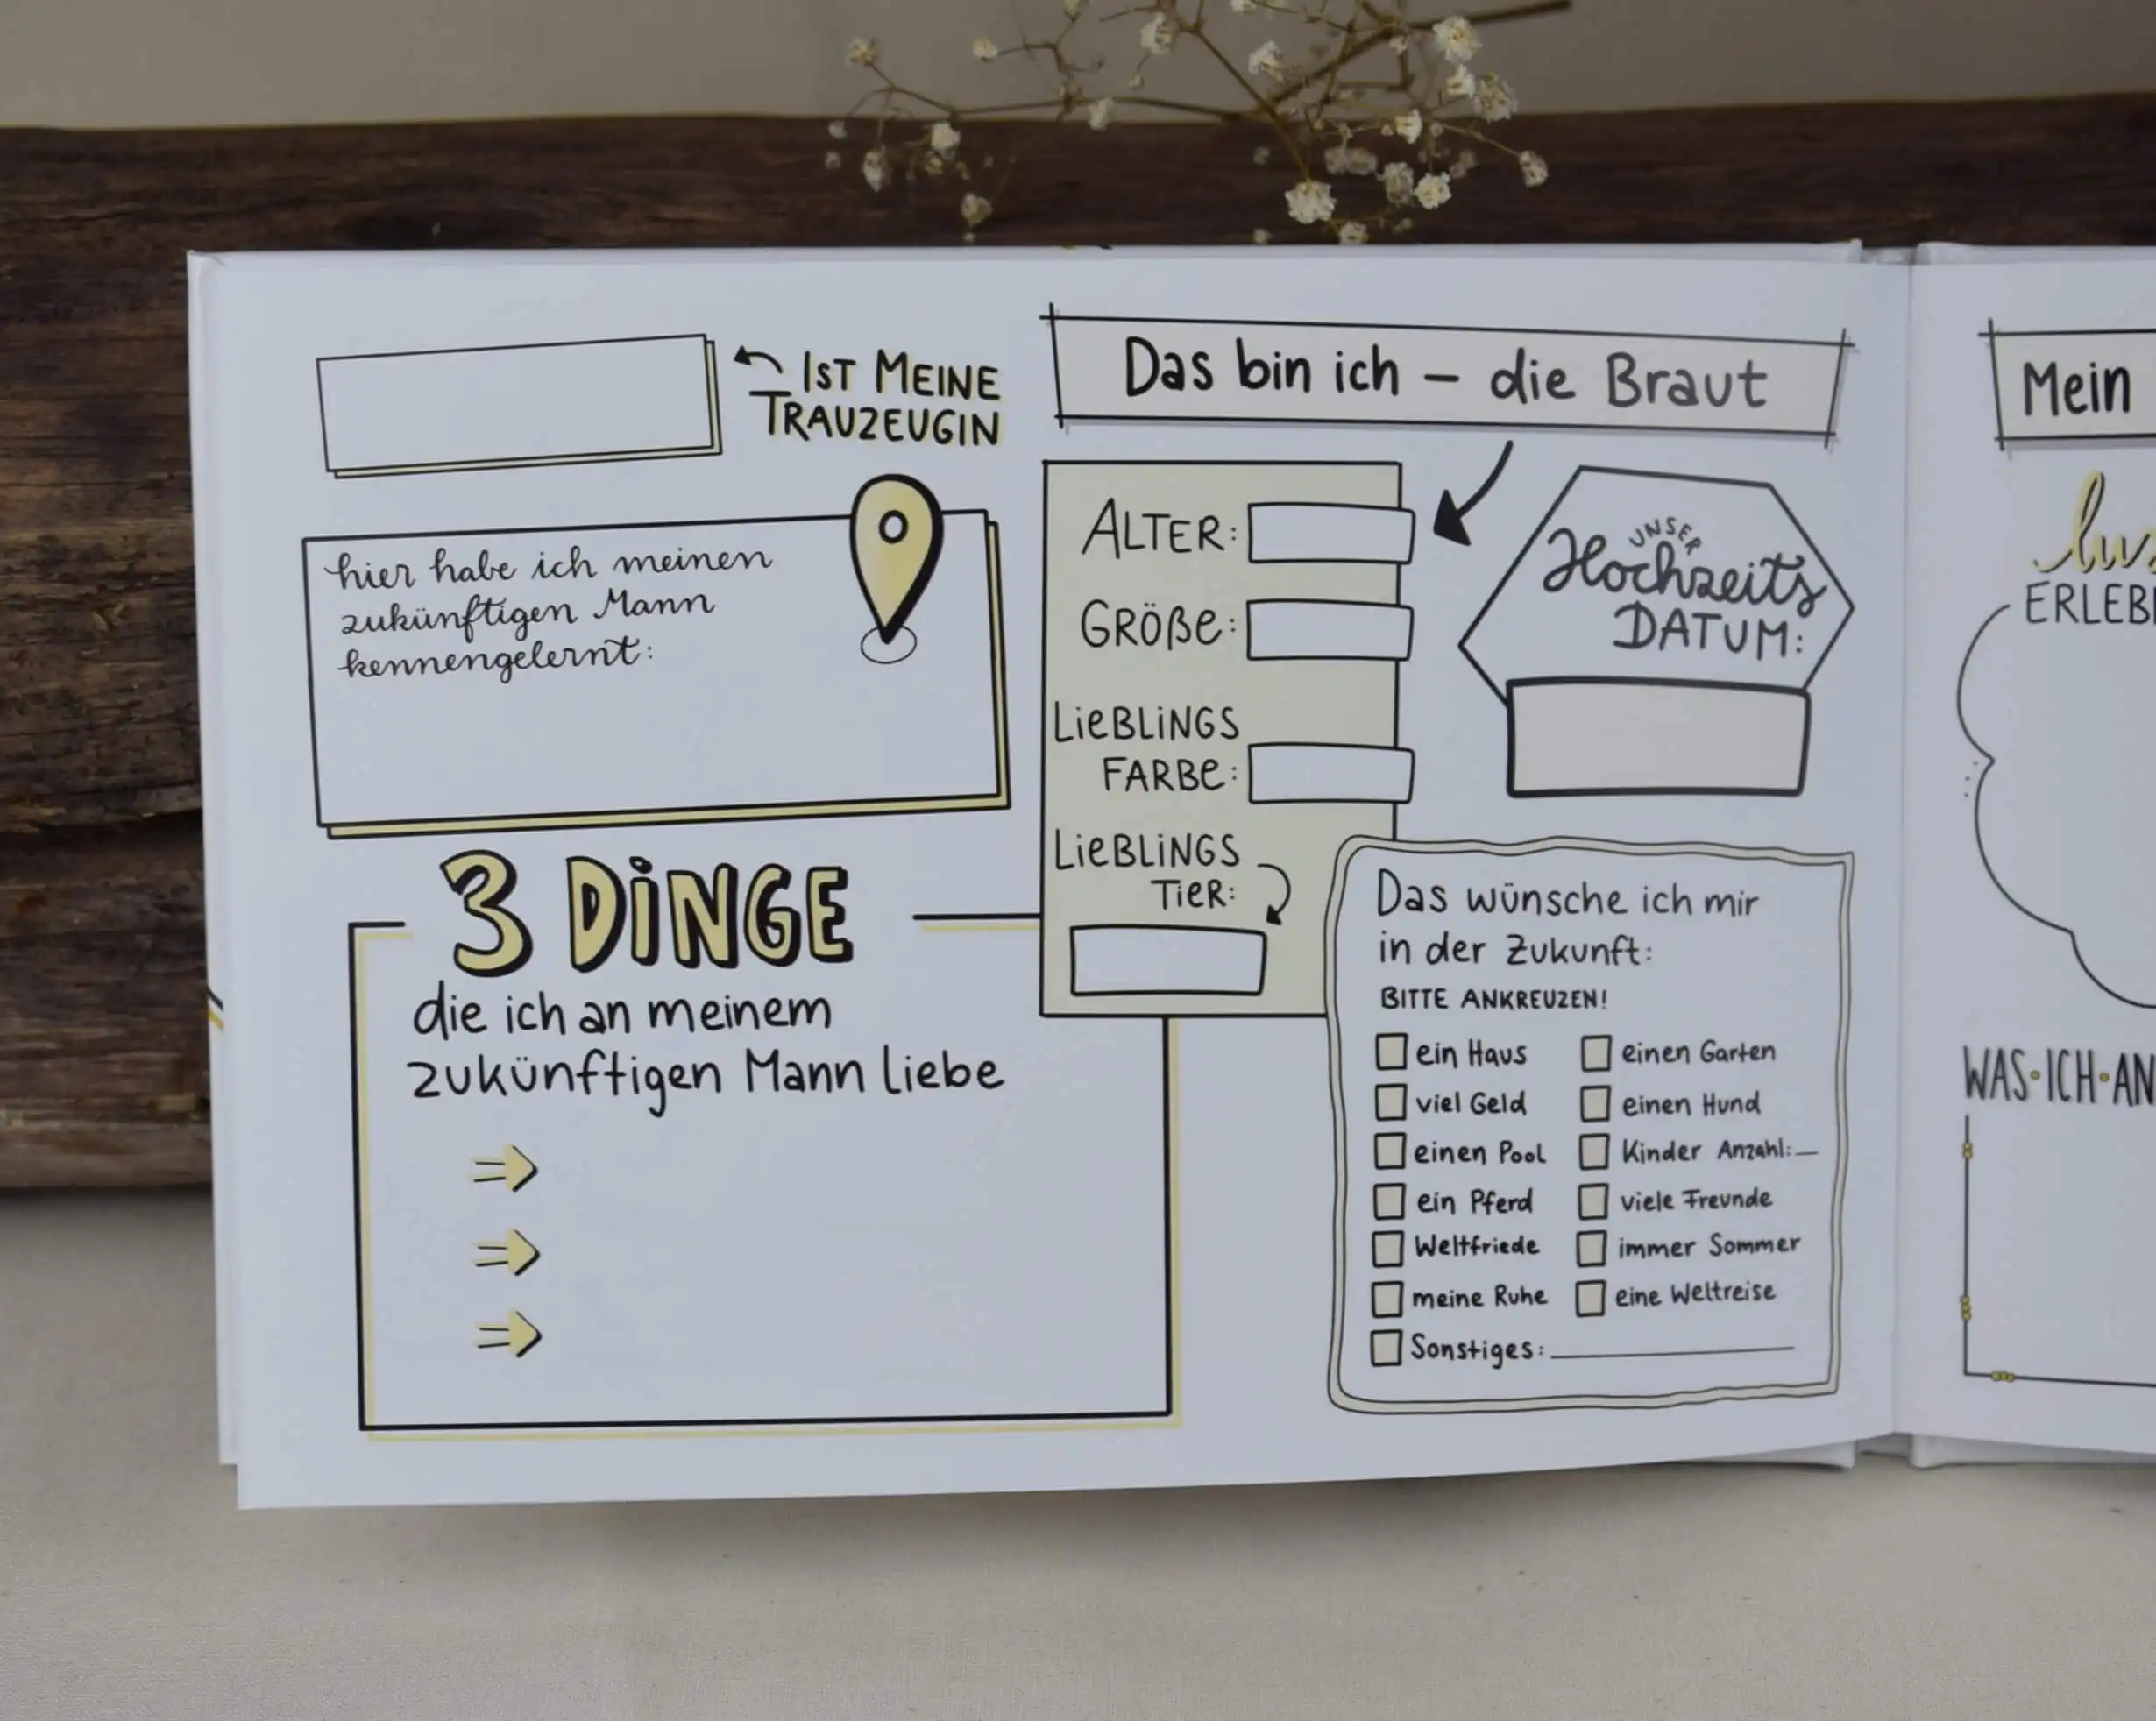 IST MEINE
TRAUZEUGIN
hier habe ich meinen
zukünftigen Mann
kennengelernt:
3 DINGE
die ich an meinem
zukünftigen Mann liebe
Das bin ich – die Braut
ALTER:
GRÖßE:
LIEBLINGS
FARBE:
LIEBLINGS
TIER:
UNSER
Hochzeits
DATUM:
Das wünsche ich mir
in der Zukunft:
BITTE ANKREUZEN!
ein Haus
einen Garten
viel Geld
einen Hund
einen Pool
Kinder Anzahl:_
ein Pferd
viele Freunde
Weltfriede
immer Sommer
meine Ruhe
eine Weltreise
Sonstiges:
Mein
WAS·ICH·AN